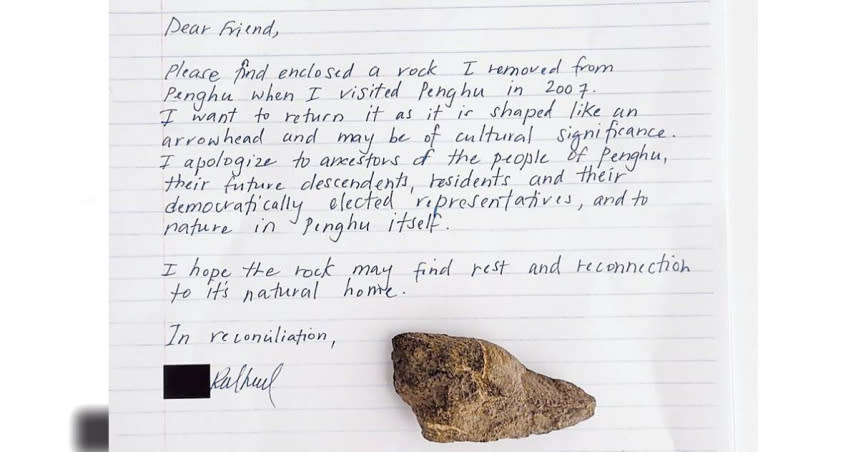 Dear Friend,
Please find enclosed a rock I removed from
Penghu when I visited Penghu in 2007.
I want to return it as it is shaped like an
arrowhead and may be of cultural significance.
I apologize to ancestors of the people of Penghu,
their future descendents, residents and their
democratically elected representatives, and to
nature in Penghu itself.
I hope the rock may find rest and reconnection
to it's natural home.
In reconciliation,